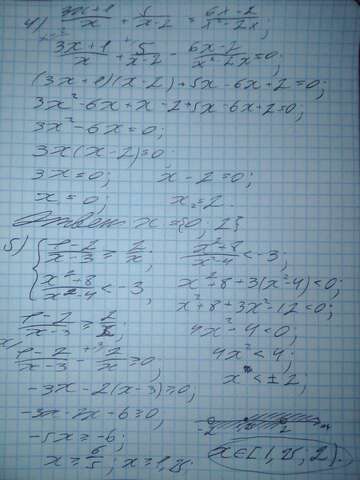 4) (3x+1)/x + 5/(x-2) = (6x-2)/(x²-2x);
(3x+1)/x + 5/(x-2) - (6x-2)/(x²-2x) = 0;
(3x+1)(x-2)+5x-6x+2=0;
3x²-6x+x-2+5x-6x+2=0;
3x²-6x=0;
3x(x-2)=0
3x=0; x-2=0;
x=0; x=2.
Ответ x={0, 2}
5) { (1-2)/(x-3) ≥ 2/x; (x²+8)/(x²-4) < -3;
(x²+8)/(x²-4) < -3, x²+8+3(x²-4)<0;
x²+8+3x²-12<0;
(1-2)/(x-3) ≥ 2/x; 4x²-4<0;
(1-2)/(x-3) - 2/x ≥0; 4x²<4;
-3x-2(x-3)≥0; x<±2;
-3x-2x-6≥0;
-5x≥-6;
x≥6/5; x≥1,25; x∈[1,25; 2).